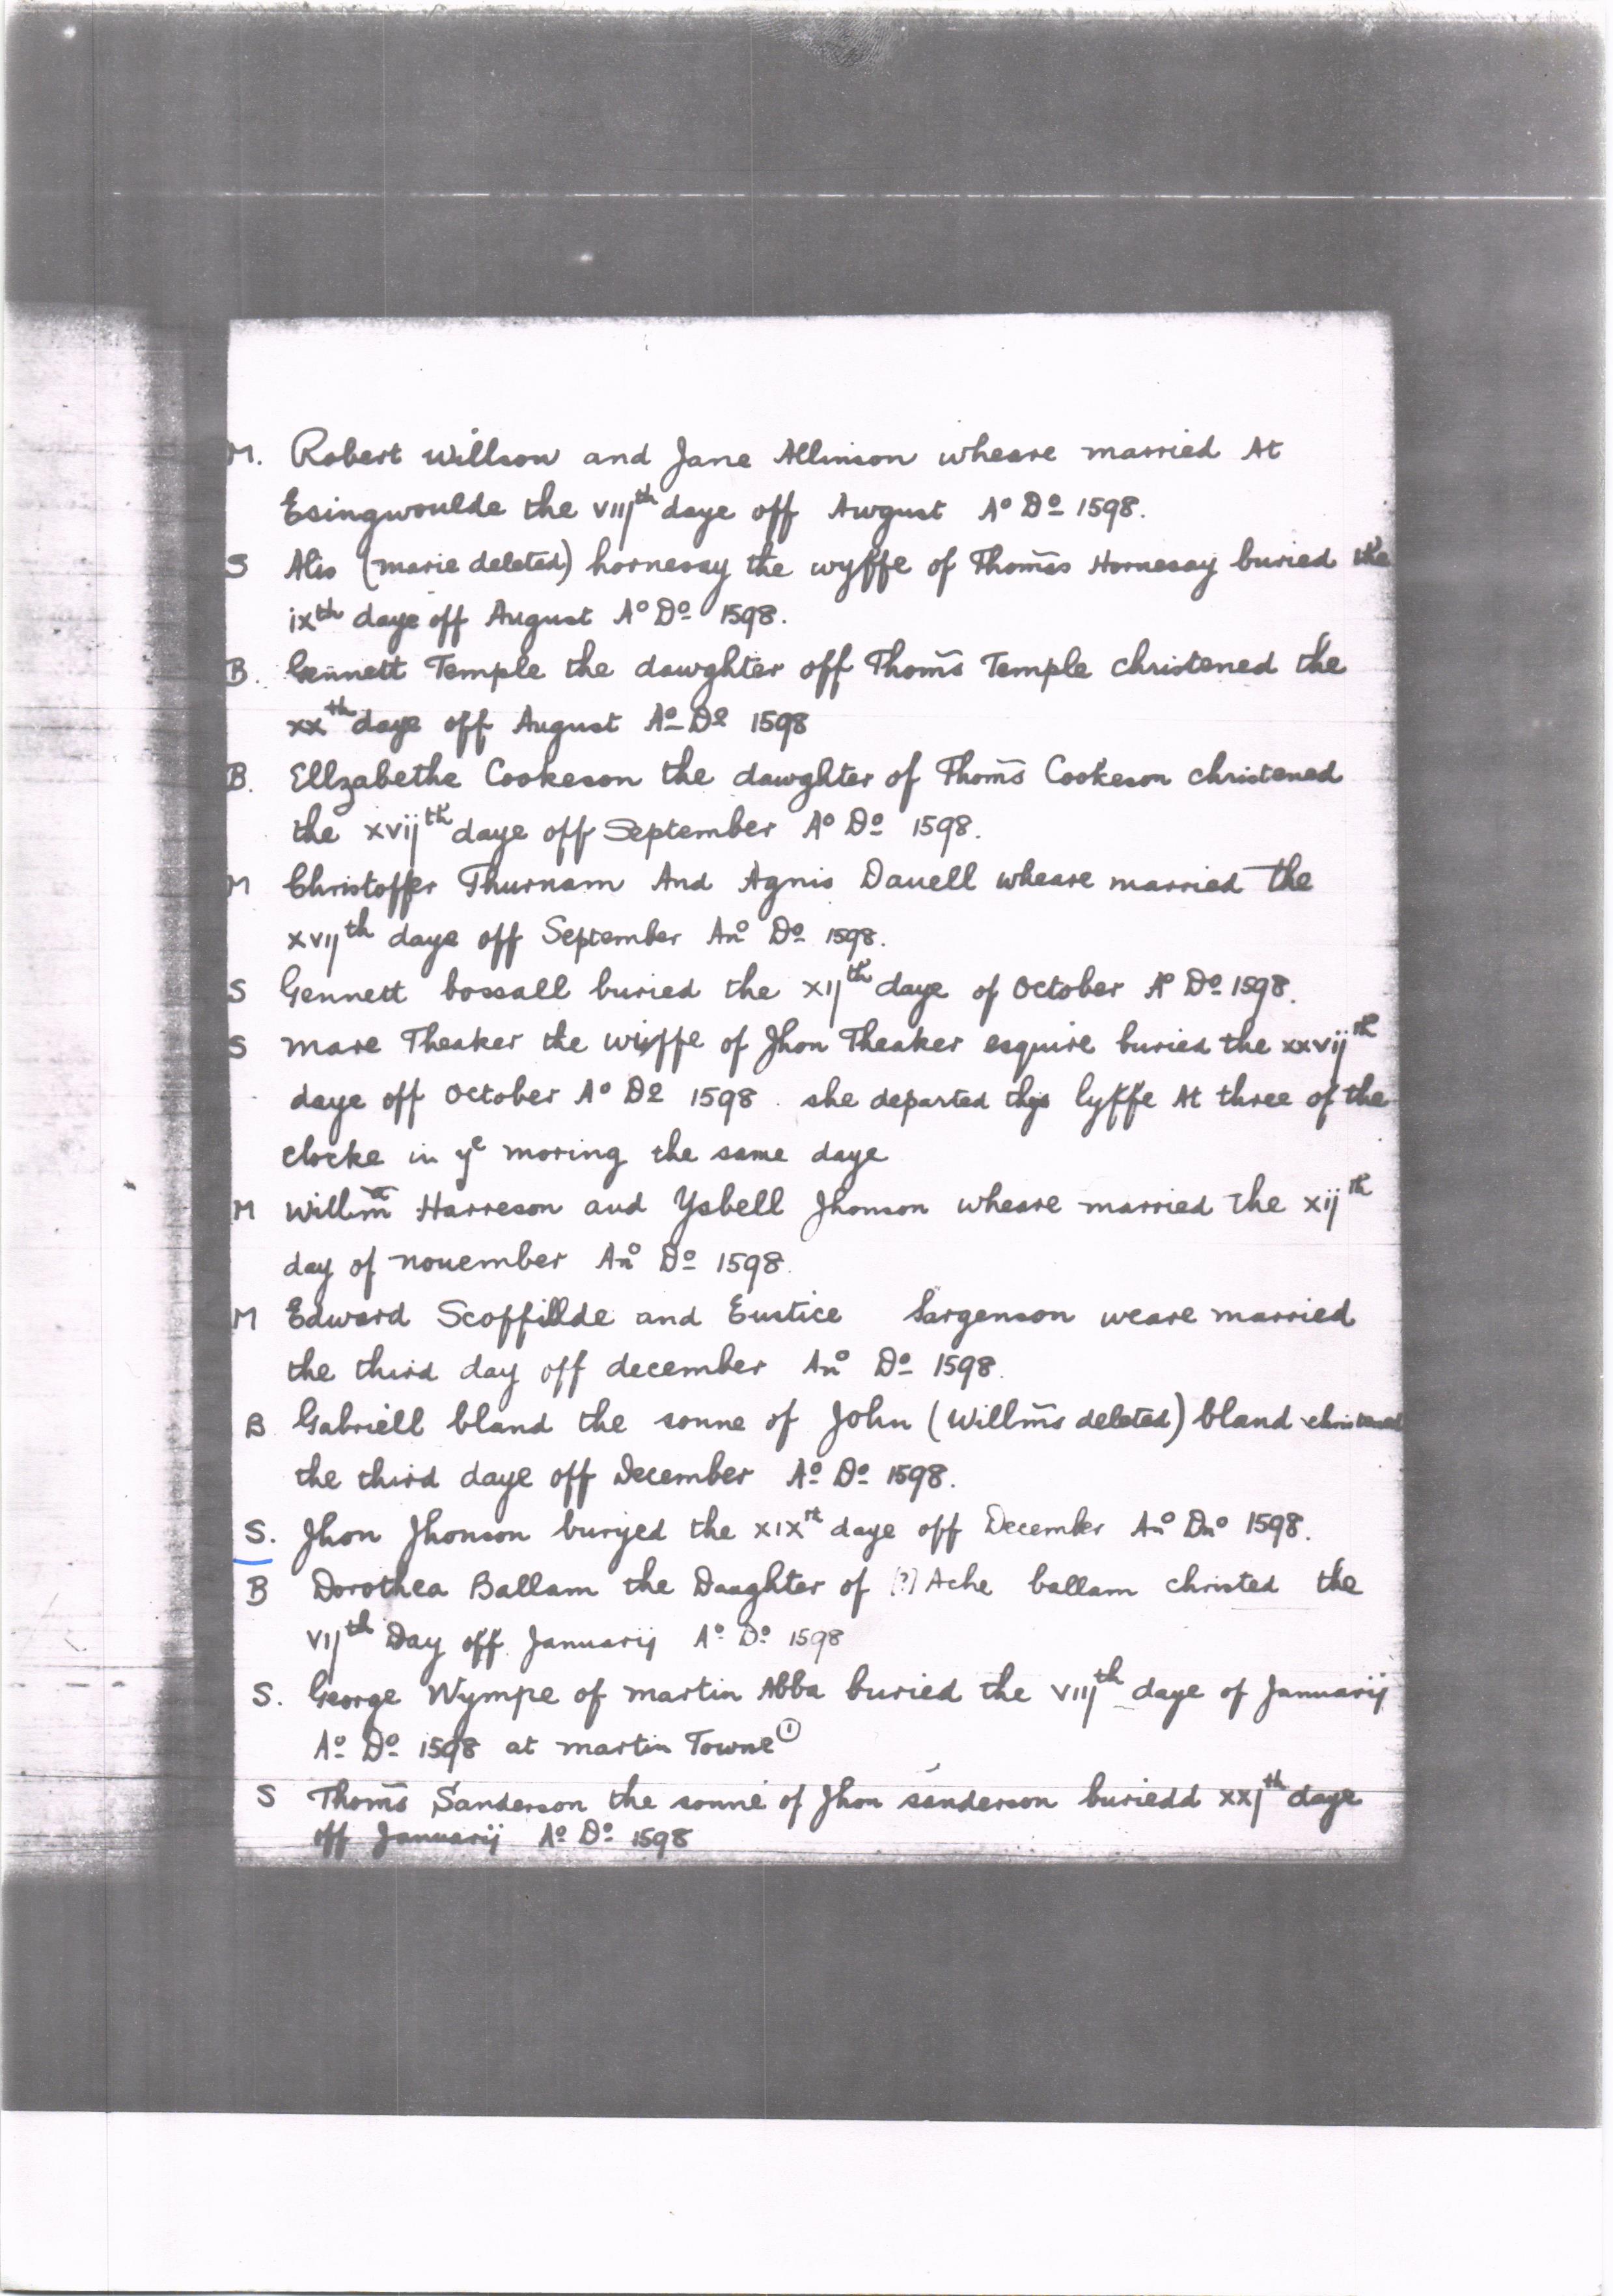 M. Robert Willson and Jane Allinson wheare married At
Esingwoulde the viijth daye off Awgust Ao Do 1598.
S Alis (marie deleted) hornesay the wyffe of Thom̄s Hornesay buried the
ixth daye off August Ao Do 1598.
B. Gennett Temple the dawghter off Thom̄s Temple christened the
xxth daye off August Ao Do 1598
B. Ellzabethe Cookeson the dawghter of Thom̄s Cookeson christened
the xvijth daye off September Ao Do 1598.
M Christoffer Thurnam And Agnis Dauell wheare married the
xvijth daye off September Ano Do 1598.
S Gennett bossall buried the xijth daye of October Ao Do 1598.
S mare Theaker the wiffe of Jhon Theaker esquire buried the xxvijth
daye off October Ao Do 1598. she departed this lyffe At three of the
clocke in ye moring the same daye
M Willm̄ Harreson and Ysbell Jhonson wheare married the xijth
day of nouember Ano Do 1598.
M Edward Scoffillde and Eustice Sargenson weare married
the third day off december Ano Do 1598.
B Gabriell bland the sonne of John (Willm̄s deleted) bland christened
the third daye off December Ao Do 1598.
S. Jhon Jhonson buryed the xixth daye off December Ano Dno 1598.
B Dorothea Ballam the Daughter of (?) Ache ballam christed the
vijth Day off Januarij Ao Do 1598
S. George Wympe of martin Abba buried the viijth daye of Januarij
Ao Do 1598 at martin Towne ①
S Thom̄s Sanderson the sonne of Jhon sanderson buriedd xxjth daye
off Januarij Ao Do 1598